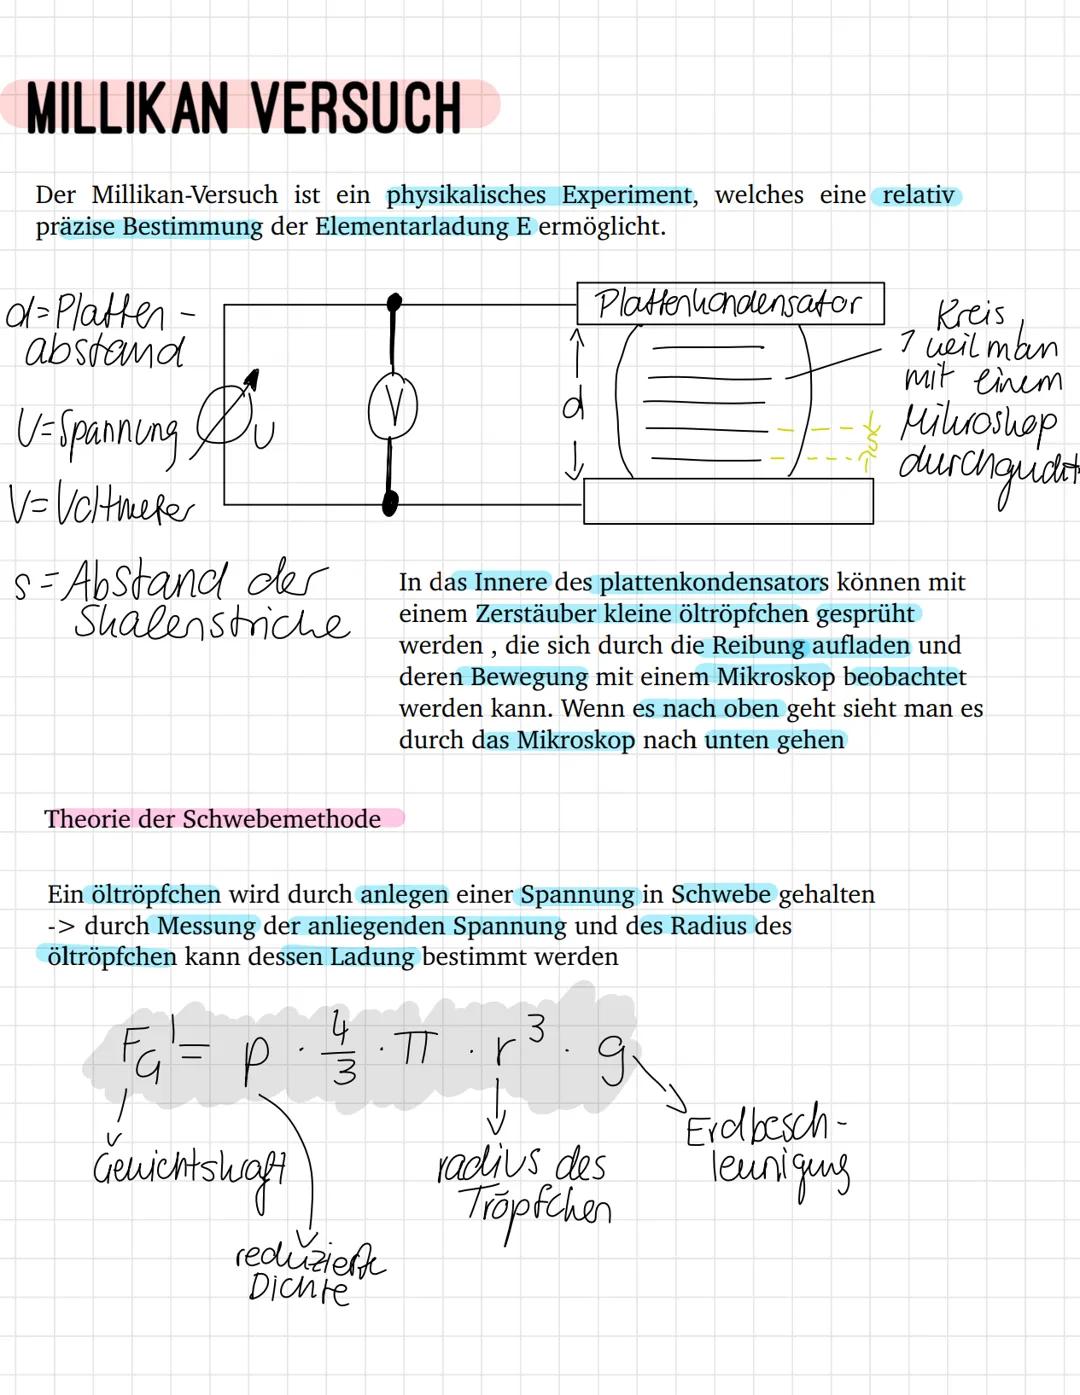 MILLIKAN VERSUCH
Der Millikan-Versuch ist ein physikalisches Experiment, welches eine relativ
präzise Bestimmung der Elementarladung E ermöglicht.
d=Platten-
abstand
U=Spannung
V=Voltmeter
s=Abstand der
Skalenstriche
U
V
d
Plattenkondensator
s
Kreis,
weil man
mit einem
Mikroskop
durchguckt
In das Innere des plattenkondensators können mit
einem Zerstäuber kleine öltröpfchen gesprüht
werden , die sich durch die Reibung aufladen und
deren Bewegung mit einem Mikroskop beobachtet
werden kann. Wenn es nach oben geht sieht man es
durch das Mikroskop nach unten gehen
Theorie der Schwebemethode
Ein öltröpfchen wird durch anlegen einer Spannung in Schwebe gehalten
-> durch Messung der anliegenden Spannung und des Radius des
öltröpfchen kann dessen Ladung bestimmt werden
F_G' = p · 4/3 · π · r³ · g
Gewichtskraft
reduzierte
Dichte
radius des
Tröpfchen
Erdbesch-
leunigung